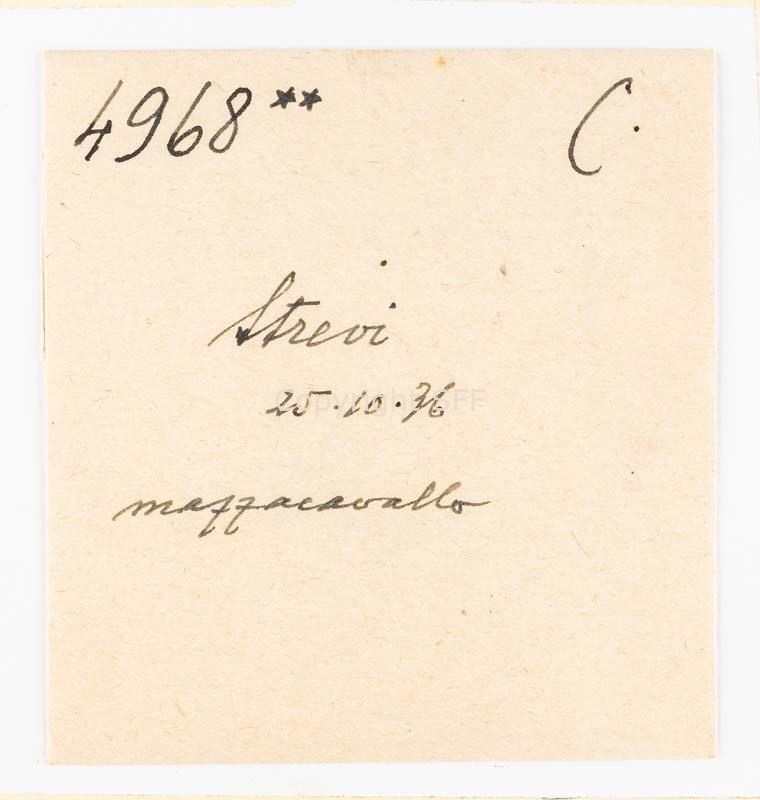 4968 ** C.
Strevi
25.10.36
mazzacavallo